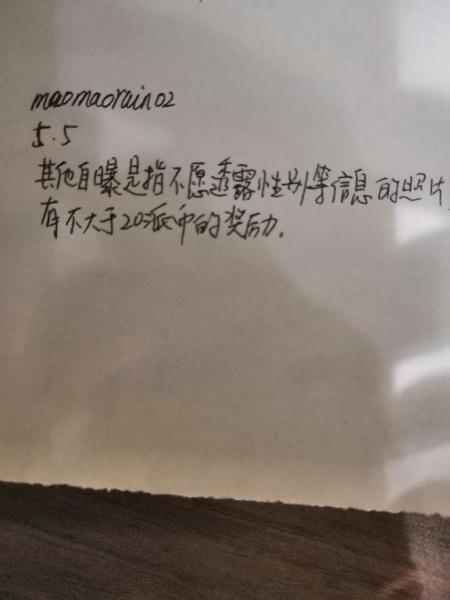 maomaorain02
5.5
其他自曝是指不愿透露性别等信息的照片,
有不大于20派币的奖励.